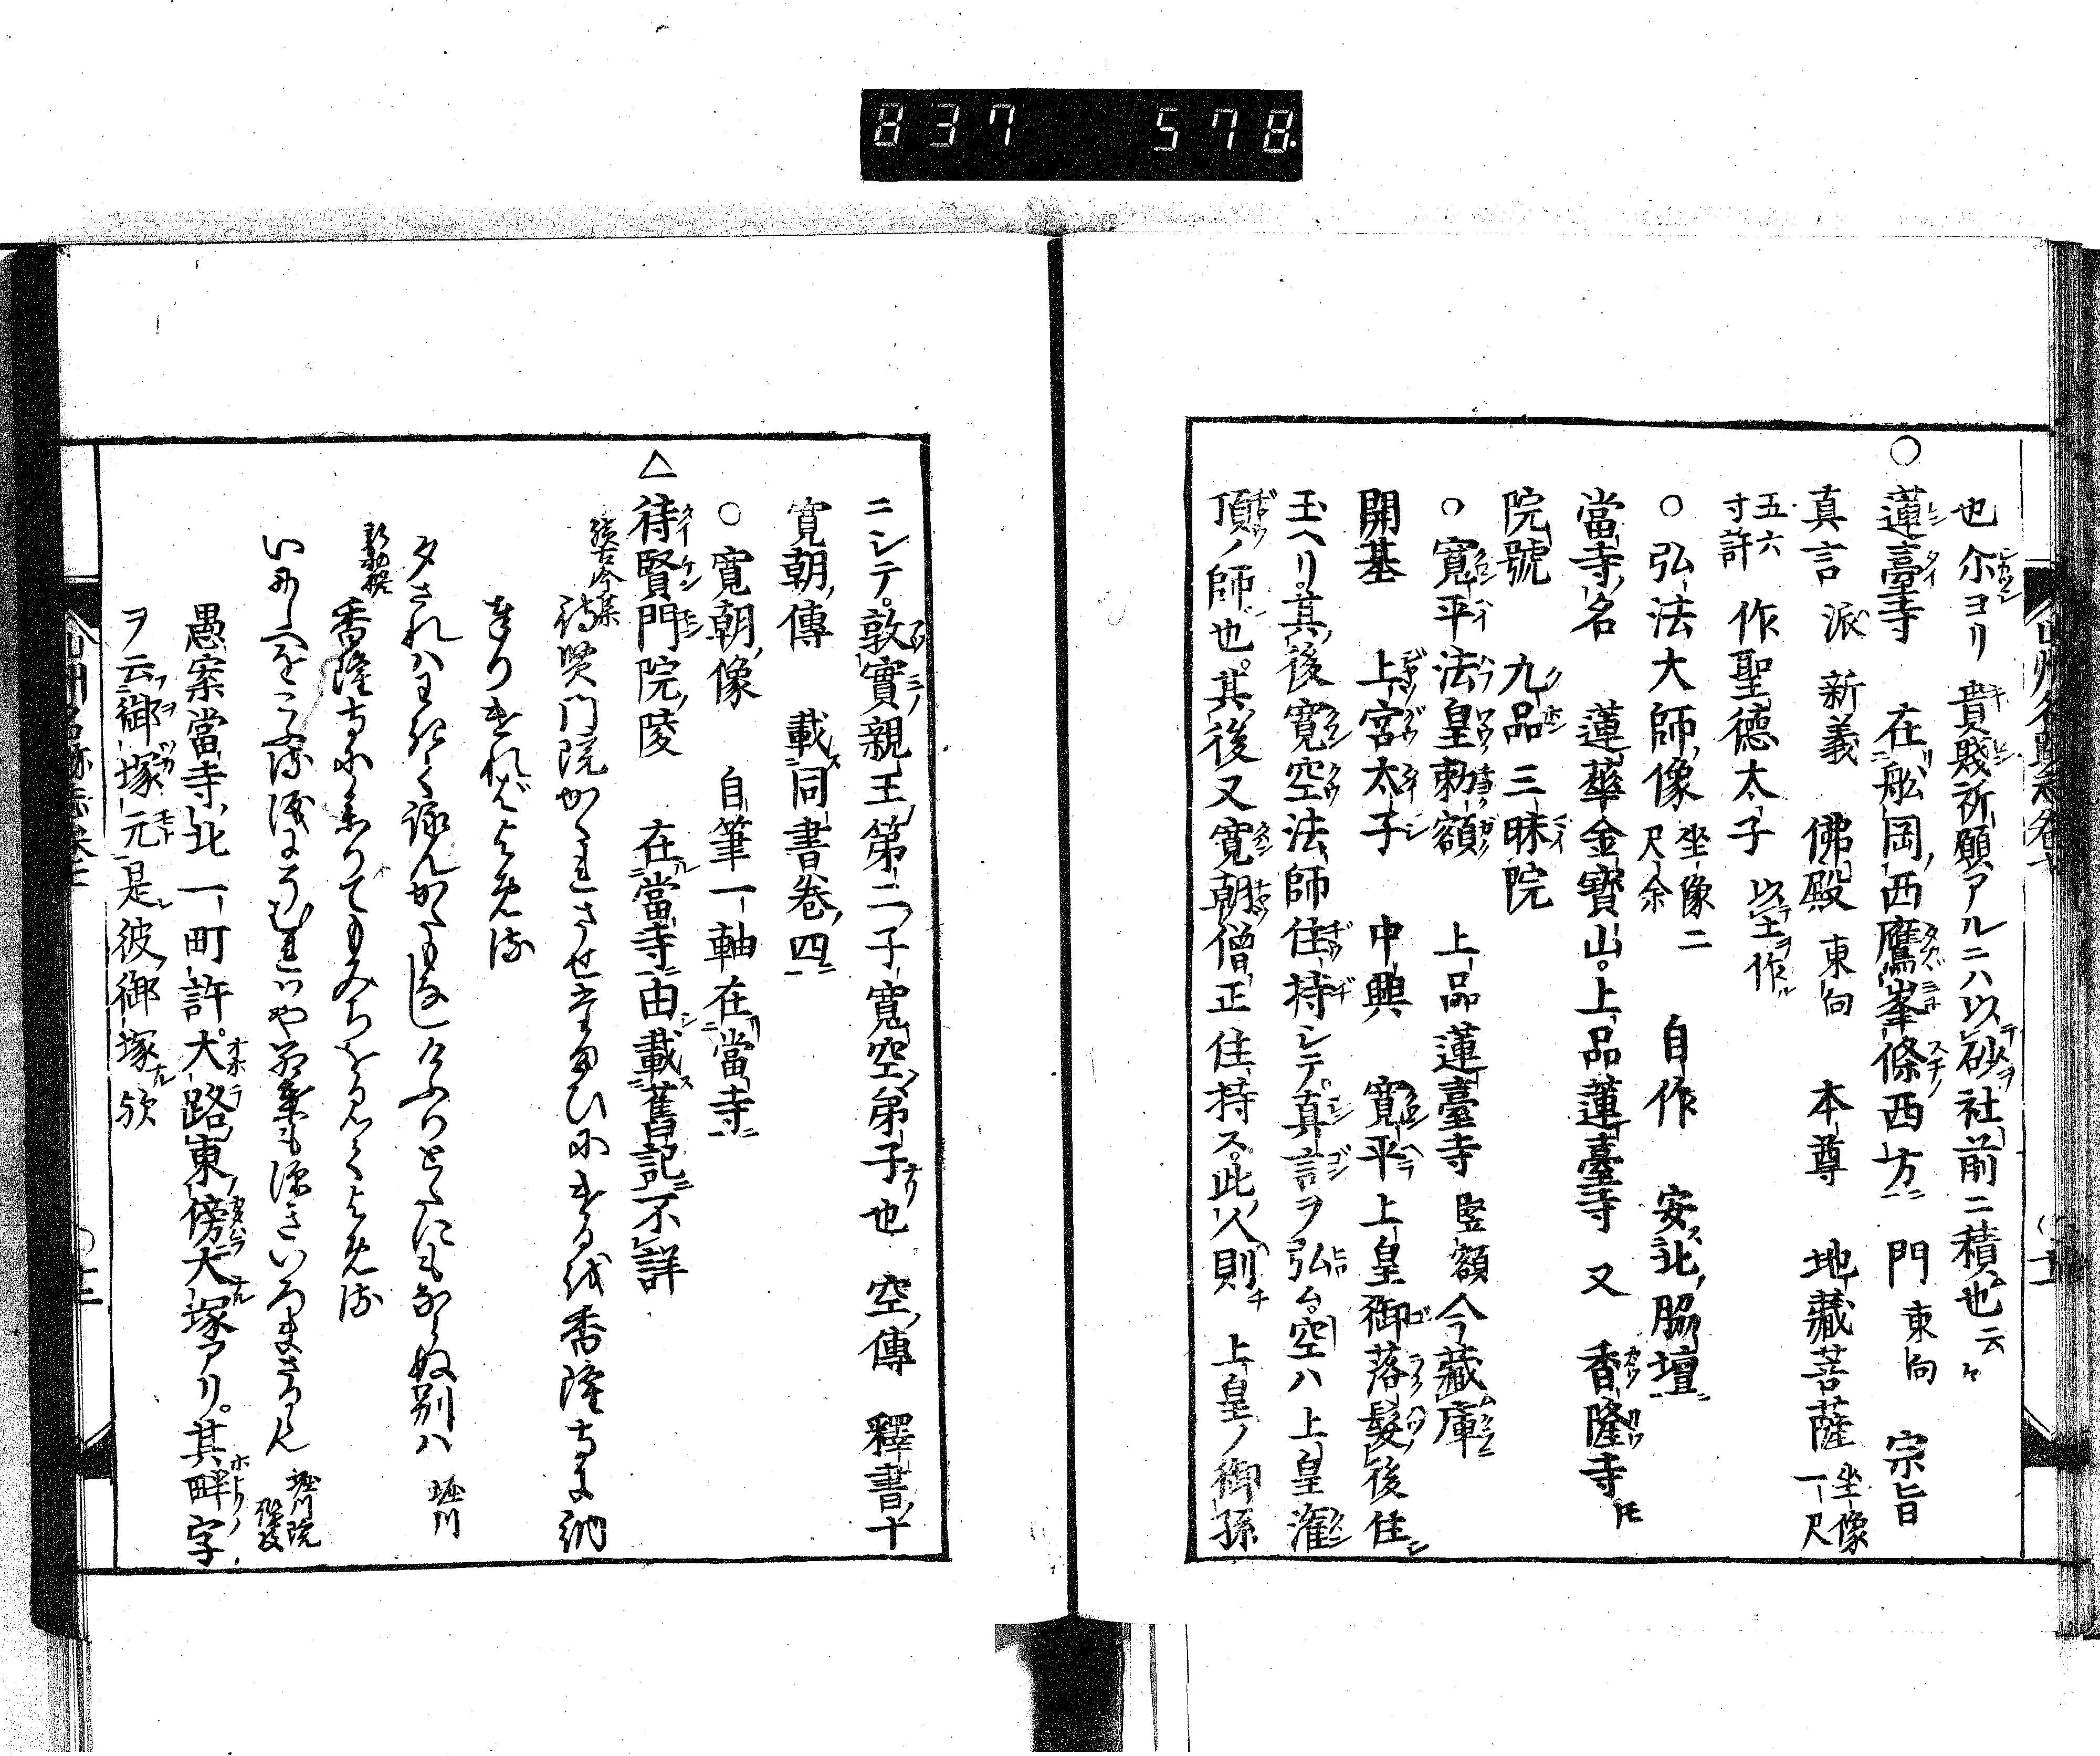 837 578
也尓ヨリ貴賤祈願アルニハ以砂社前ニ積也云々
○蓮臺寺 在舩岡西鷹峯條西方 門東向 宗旨
真言派新義 佛殿東向 本尊 地藏菩薩 坐像一尺
五六寸許 作聖德太子 以土作
○弘法大師像 坐像二尺余 自作 安北脇壇
當寺名 蓮華金寳山上品蓮臺寺 又 香隆寺 𪜈
院號 九品三昧院
○寛平法皇勅額 上品蓮臺寺 竪額 今藏庫
開基 上宮太子 中興 寛平上皇御落髮後住
玉ヘリ。其後寛空法師住持シテ。真言ヲ弘ム。空ハ上皇潅
頂ノ師也。其後又寛朝僧正住持ス。此人則 上皇ノ御孫
山州名跡志卷七
ニシテ。敦實親王第二子寛空弟子也 空傳 釋書十
寛朝傳 載同書卷四
○寛朝像 自筆一軸在當寺
△待賢門院陵 在當寺由載舊記不詳
續古今集
待賢門院かくれさせ玉ひにける後香隆寺に納
奉りければよめる
夕されハわきて詠んかたもなし けふりとたにもならぬ別ハ 堀川
新勅撰
香隆寺に参りてもみちを見てよめる
いにしへをこふる涙にそむれハや 紅葉も深きいろまさるらん 堀川院
愚案當寺北一町許大路東傍大塚アリ。其畔字
ヲ云御塚元是彼御塚欤